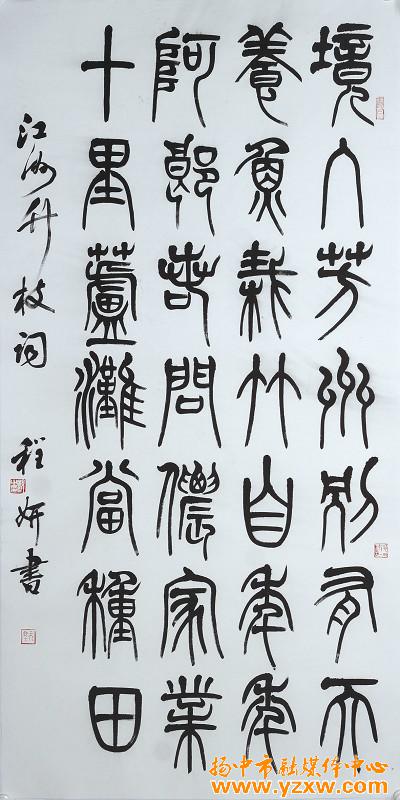 境入芳州別有天
養魚栽竹自年年
阿郎若問儂家業
十里蘆灘當種田
江洲竹枝詞 程妍書
扬中市融媒体中心
www.yzxw.com